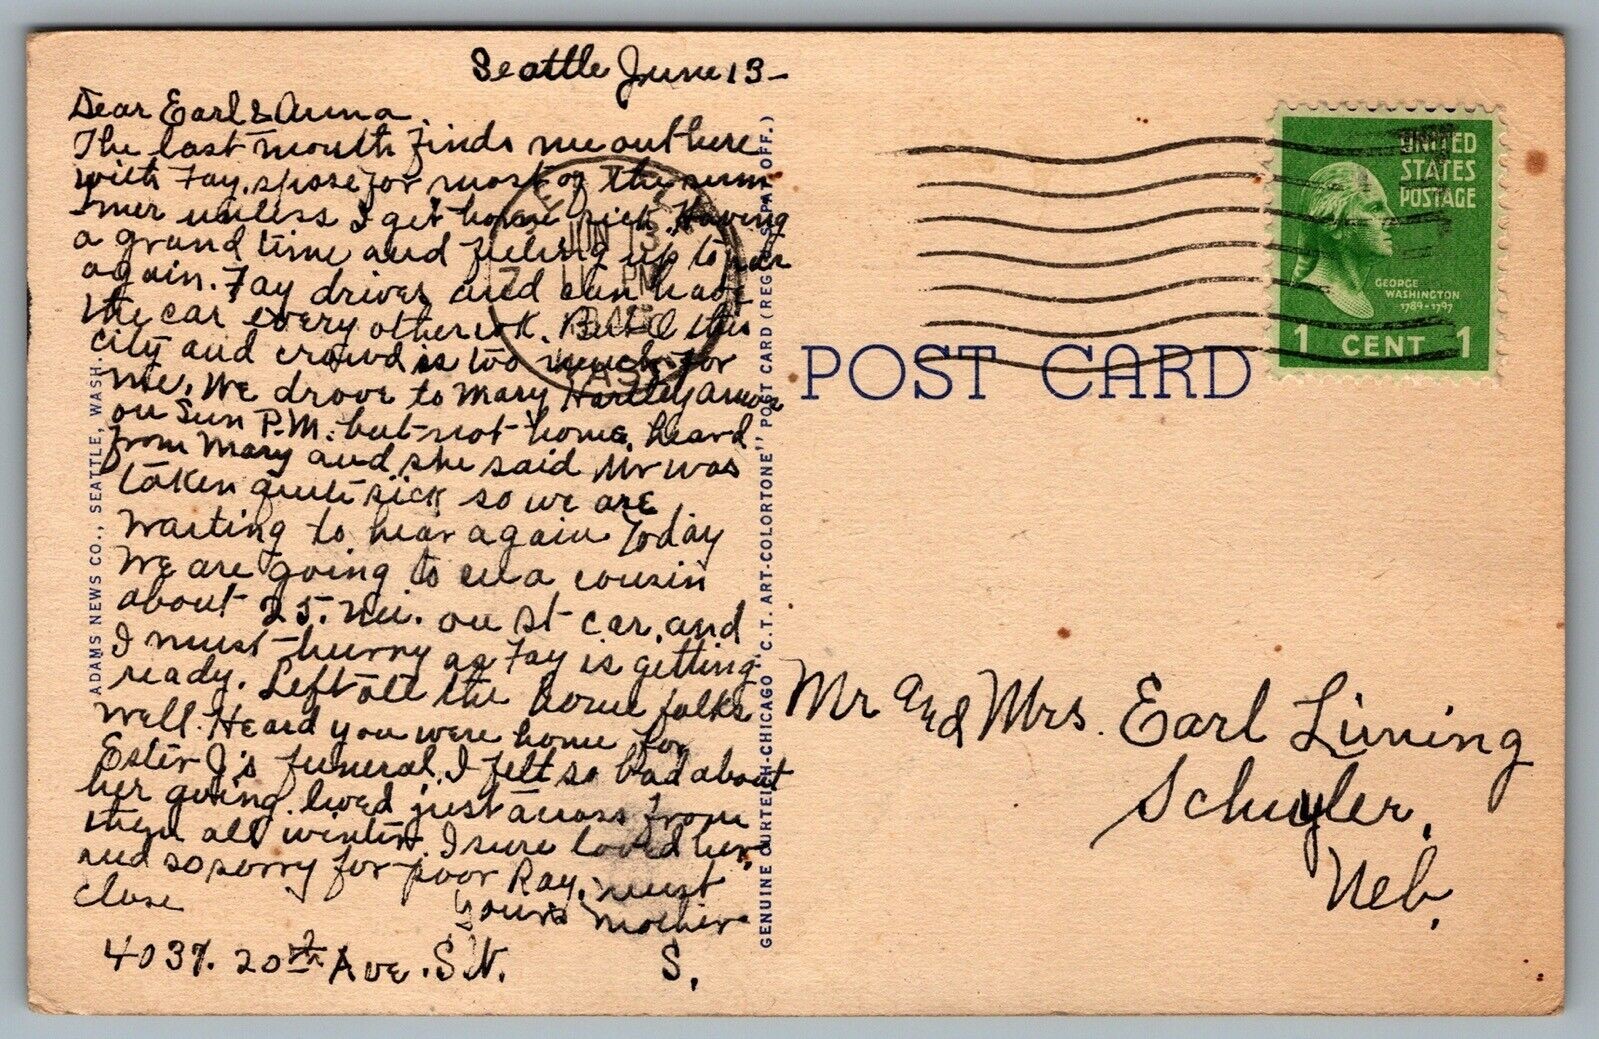 Seattle June 13-
Dear Earl & Anna.
The last month finds me out here
with Fay, spose for most of the sum
mer unless I get home sick. Having
a grand time and feeling up to par
again. Fay drives and can have
the car every other wk. But O this
city and crowd is too much for
me. We drove to Mary Hartley
on Sun P.M. but not home, heard
from Mary and she said Mr was
taken quite sick so we are
waiting to hear again Today
We are going to a cousin
about 25. mi. on St car, and
I must hurry as Fay is getting
ready. Left all the home folks
well. Heard you were home for
Ester J's funeral. I felt so bad about
her going. lived just across from
them all winter. I sure loved her
and so sorry for poor Ray, must
close
Yours Mother
4037. 20th Ave. S.W. S.
ADAMS NEWS CO., SEATTLE, WASH.
GENUINE CURTEICH-CHICAGO "C.T. ART-COLORTONE" POST CARD (REG. U.S. PAT. OFF.)
JUN 13
PM
WASH
UNITED
STATES
POSTAGE
GEORGE
WASHINGTON
1789-1797
1 CENT 1
POST CARD
Mr and Mrs. Earl Luning
Schuyler,
Neb.